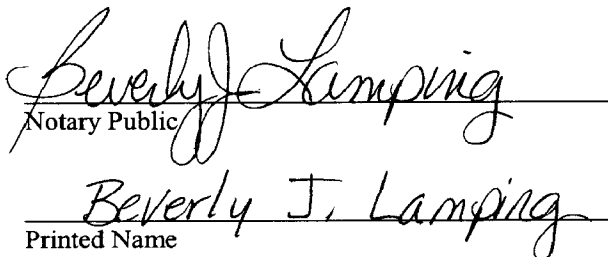 Beverly J. Lamping
Notary Public
Beverly J. Lamping
Printed Name